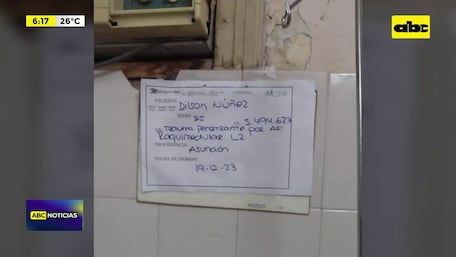 6:17 26°C
abc
PACIENTE: Dilson Núñez
EDAD: 25 CI: 5.494.627
DX: Trauma penetrante por AF
Raquimedular L2
PROCEDENCIA:
Asunción
FECHA DE INGRESO
19-12-23
ABC NOTICIAS